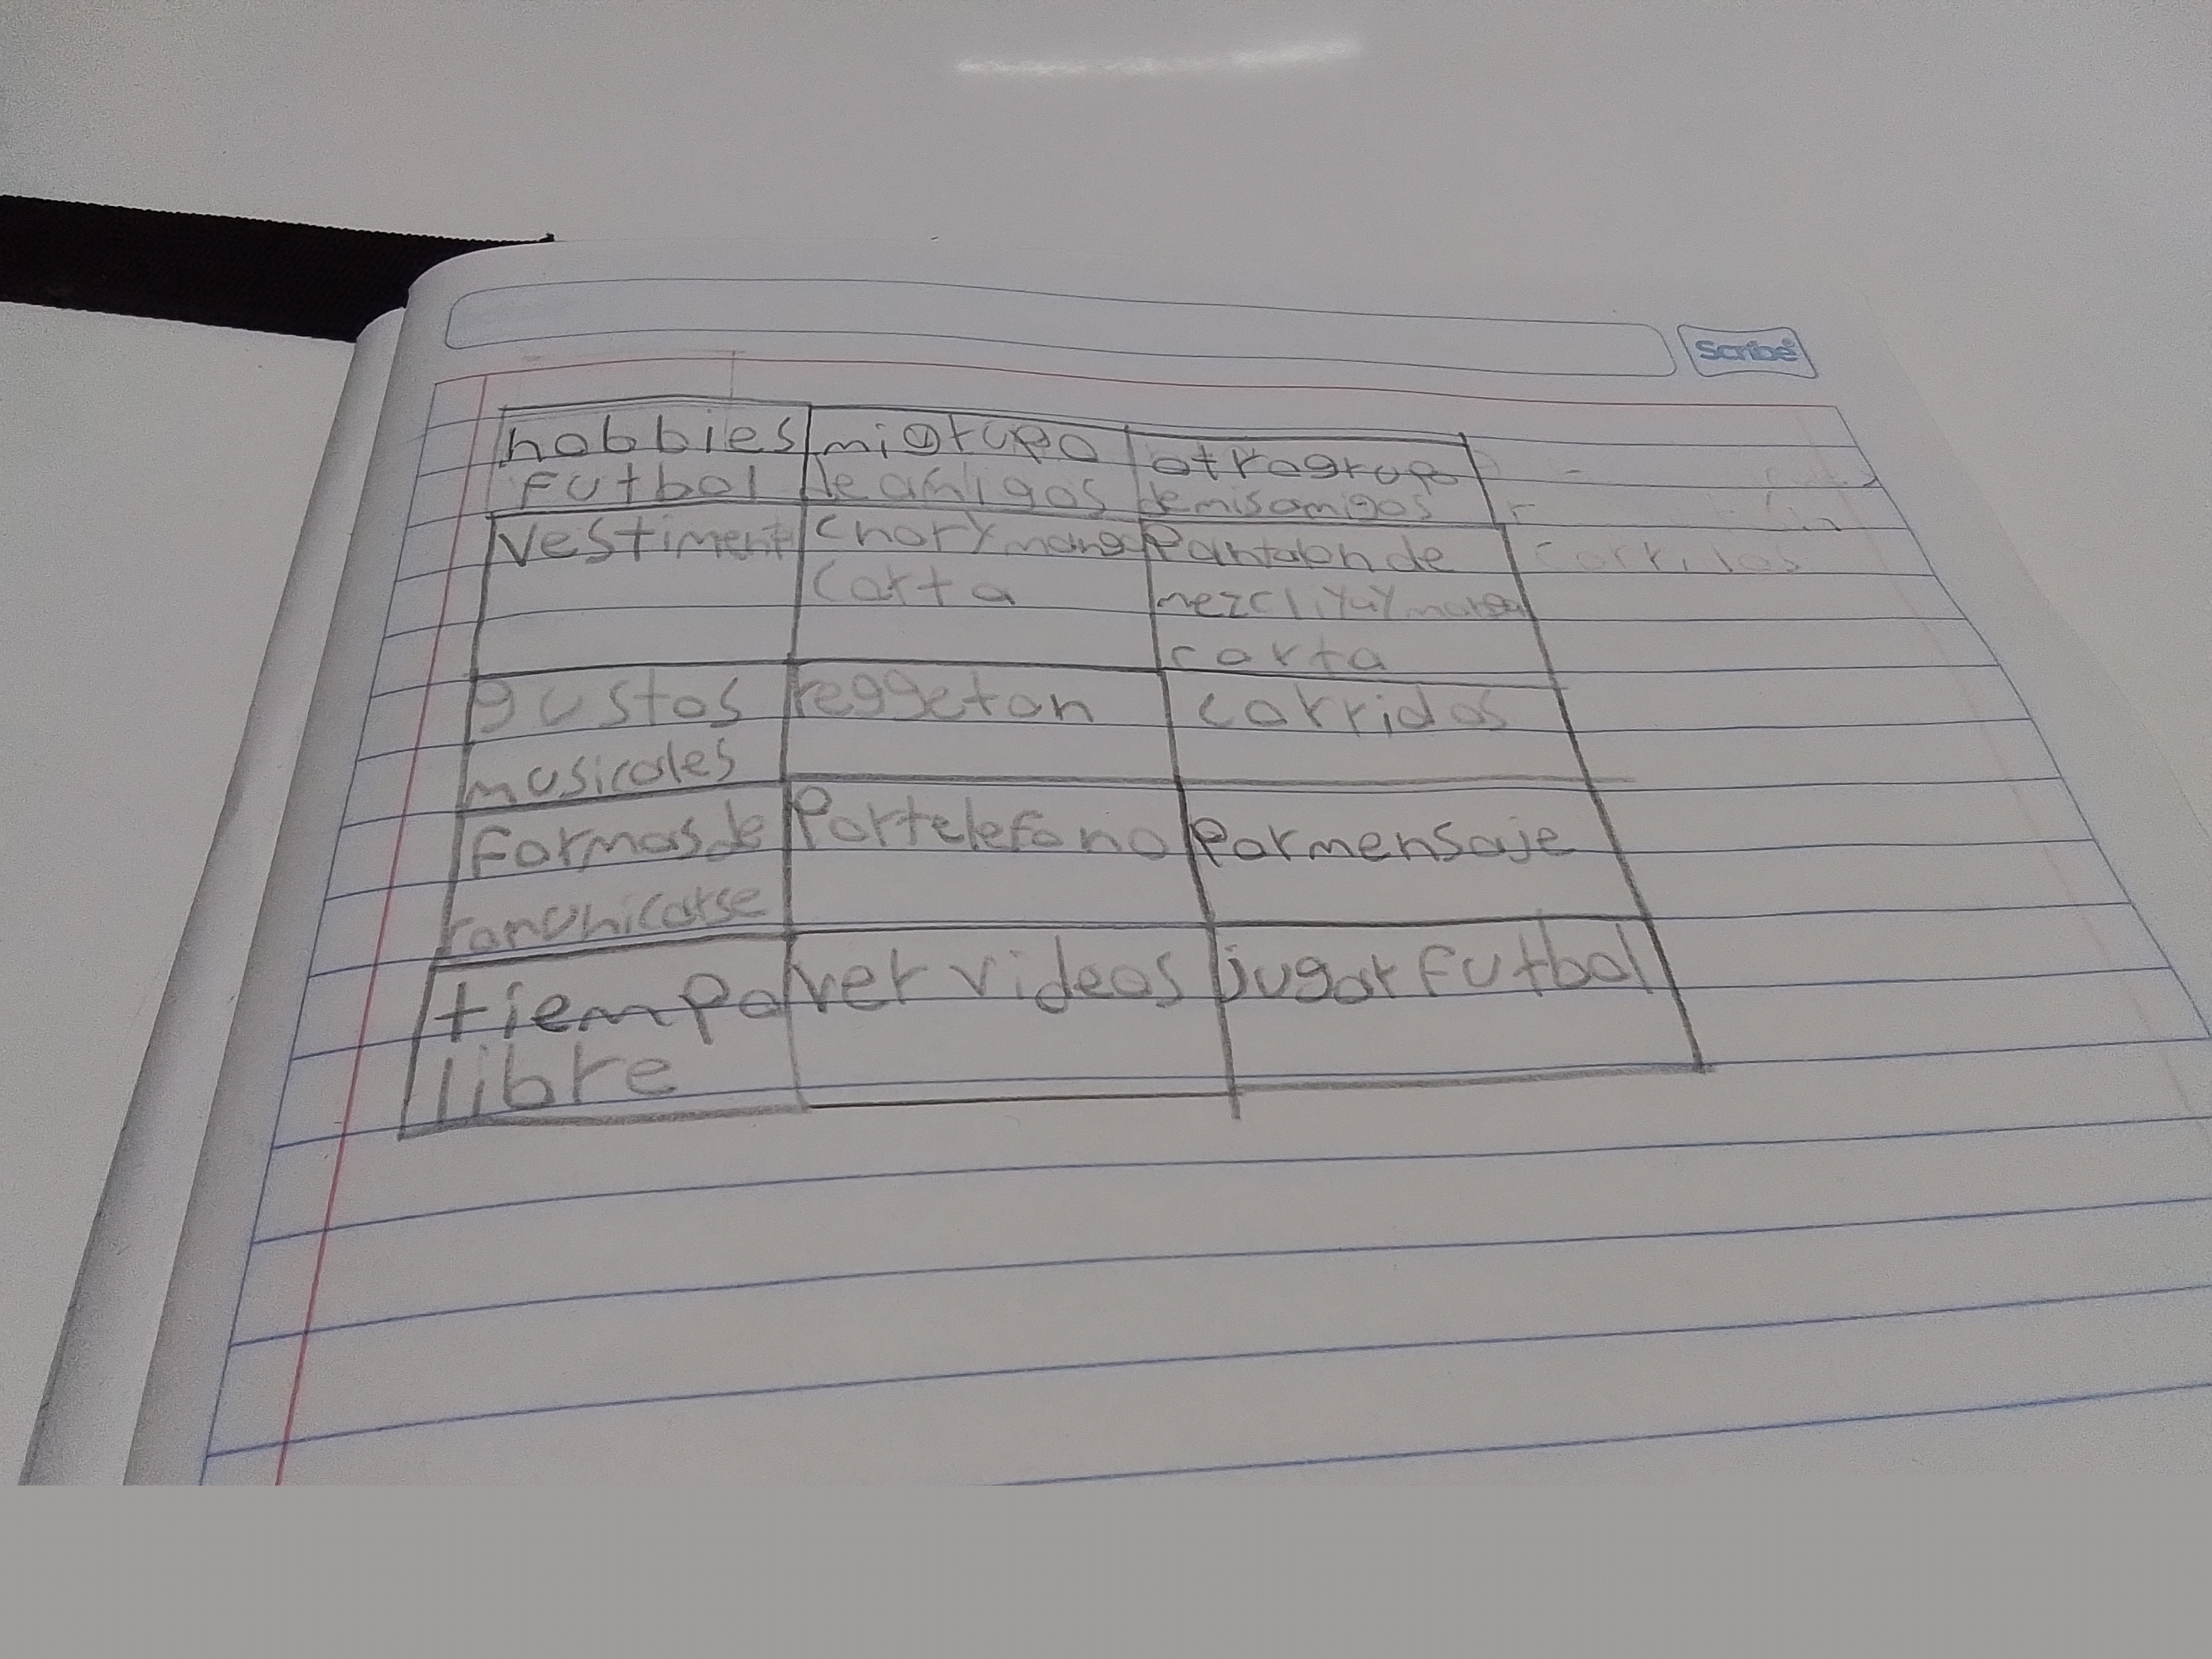 Scribe
hobbies
futbol
mi grupo
de amigos
otro grupo
de mis amigos
vestiment
chor y mang
corta
Pantalon de
corta
gustos
musicales
reggeton
corridos
formas de
comunicarse
Por telefono
Por mensaje
tiempo
libre
ver videos
jugar futbol